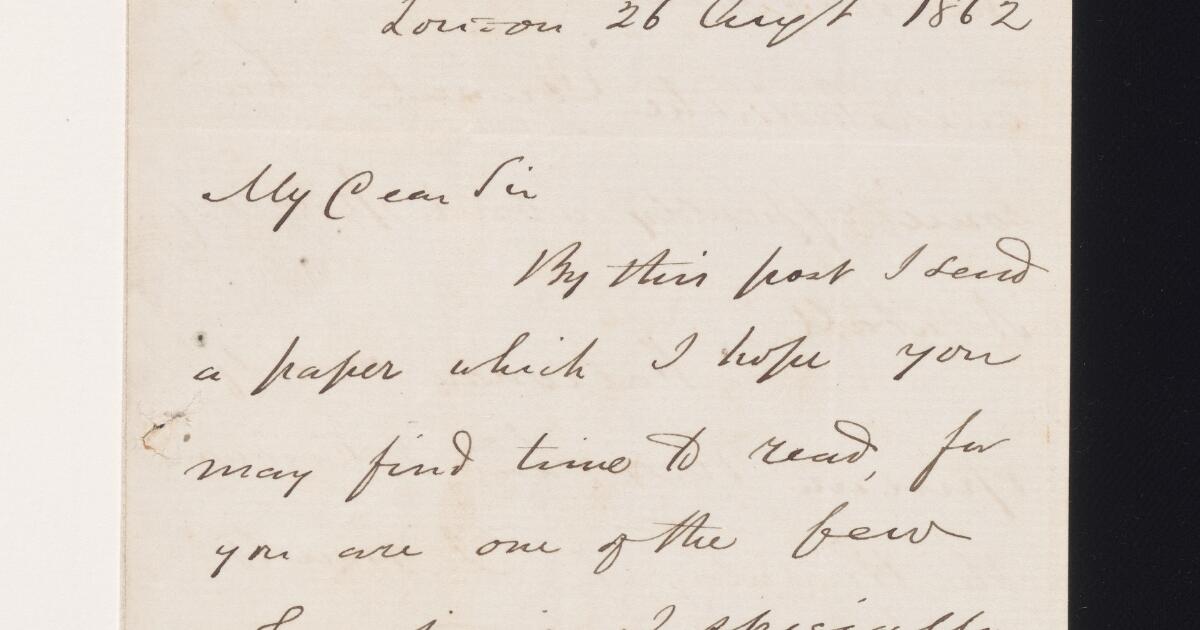 London 26 Augt 1862
My Dear Sir
By this post I send
a paper which I hope you
may find time to read, for
you are one of the few
I specially